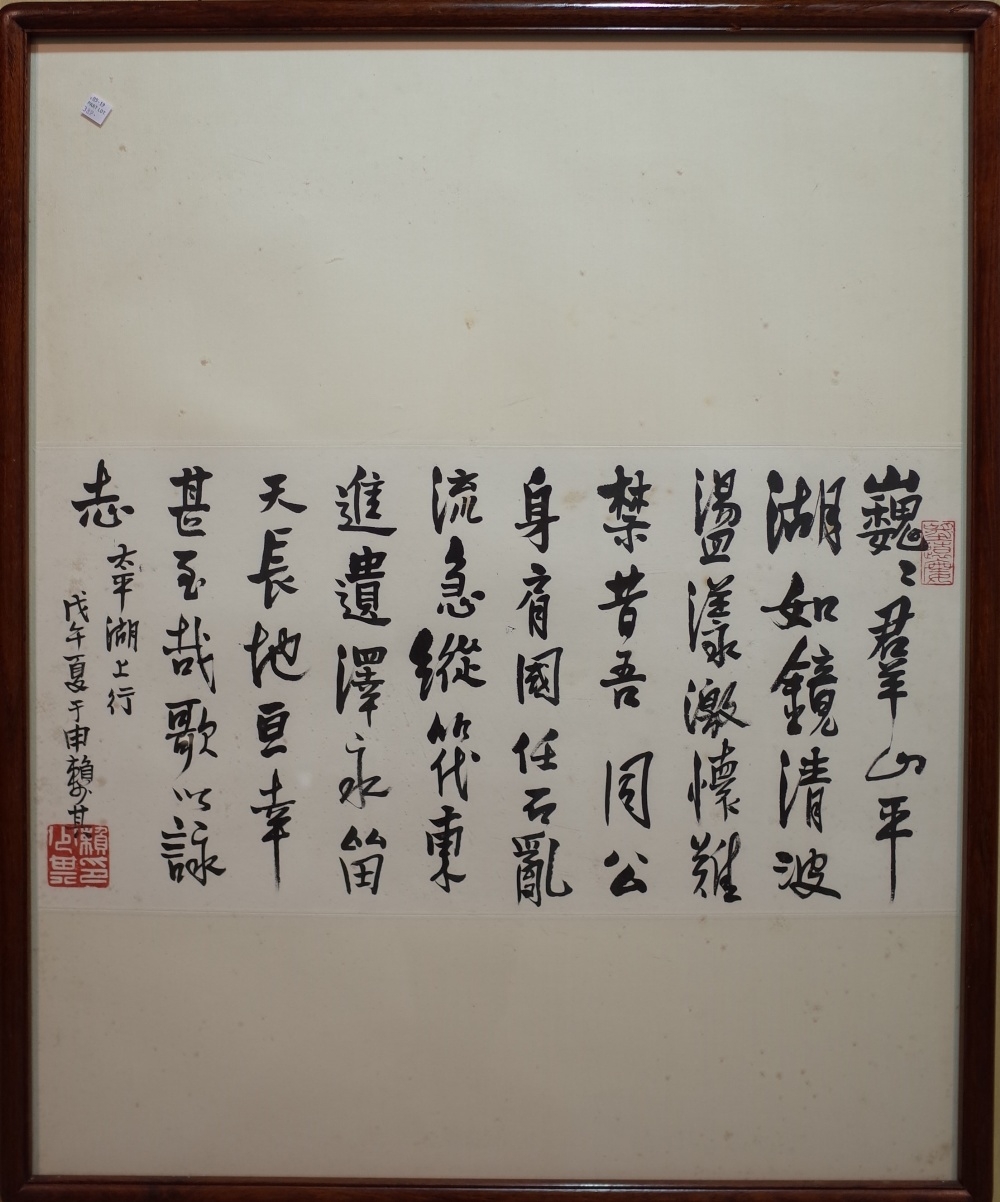 巍〻群山平
湖如鏡清波
盪漾激懷難
禁昔吾周公
身肩國任石亂
流急縱筏東
進遺澤永留
天長地亘幸
甚至哉歌以詠
志 太平湖上行
戊午夏于申賴少其